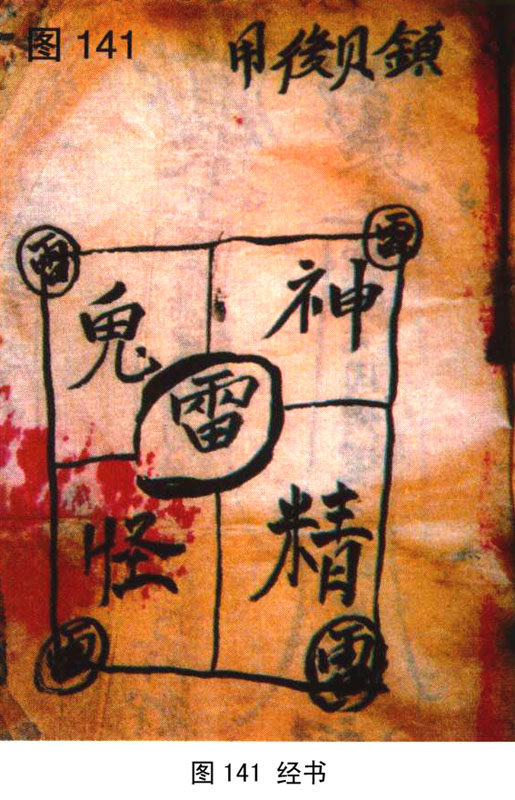 图 141
用後贝鎮
雷 雷
鬼 神
雷
怪 精
雷 雷
图 141 经书